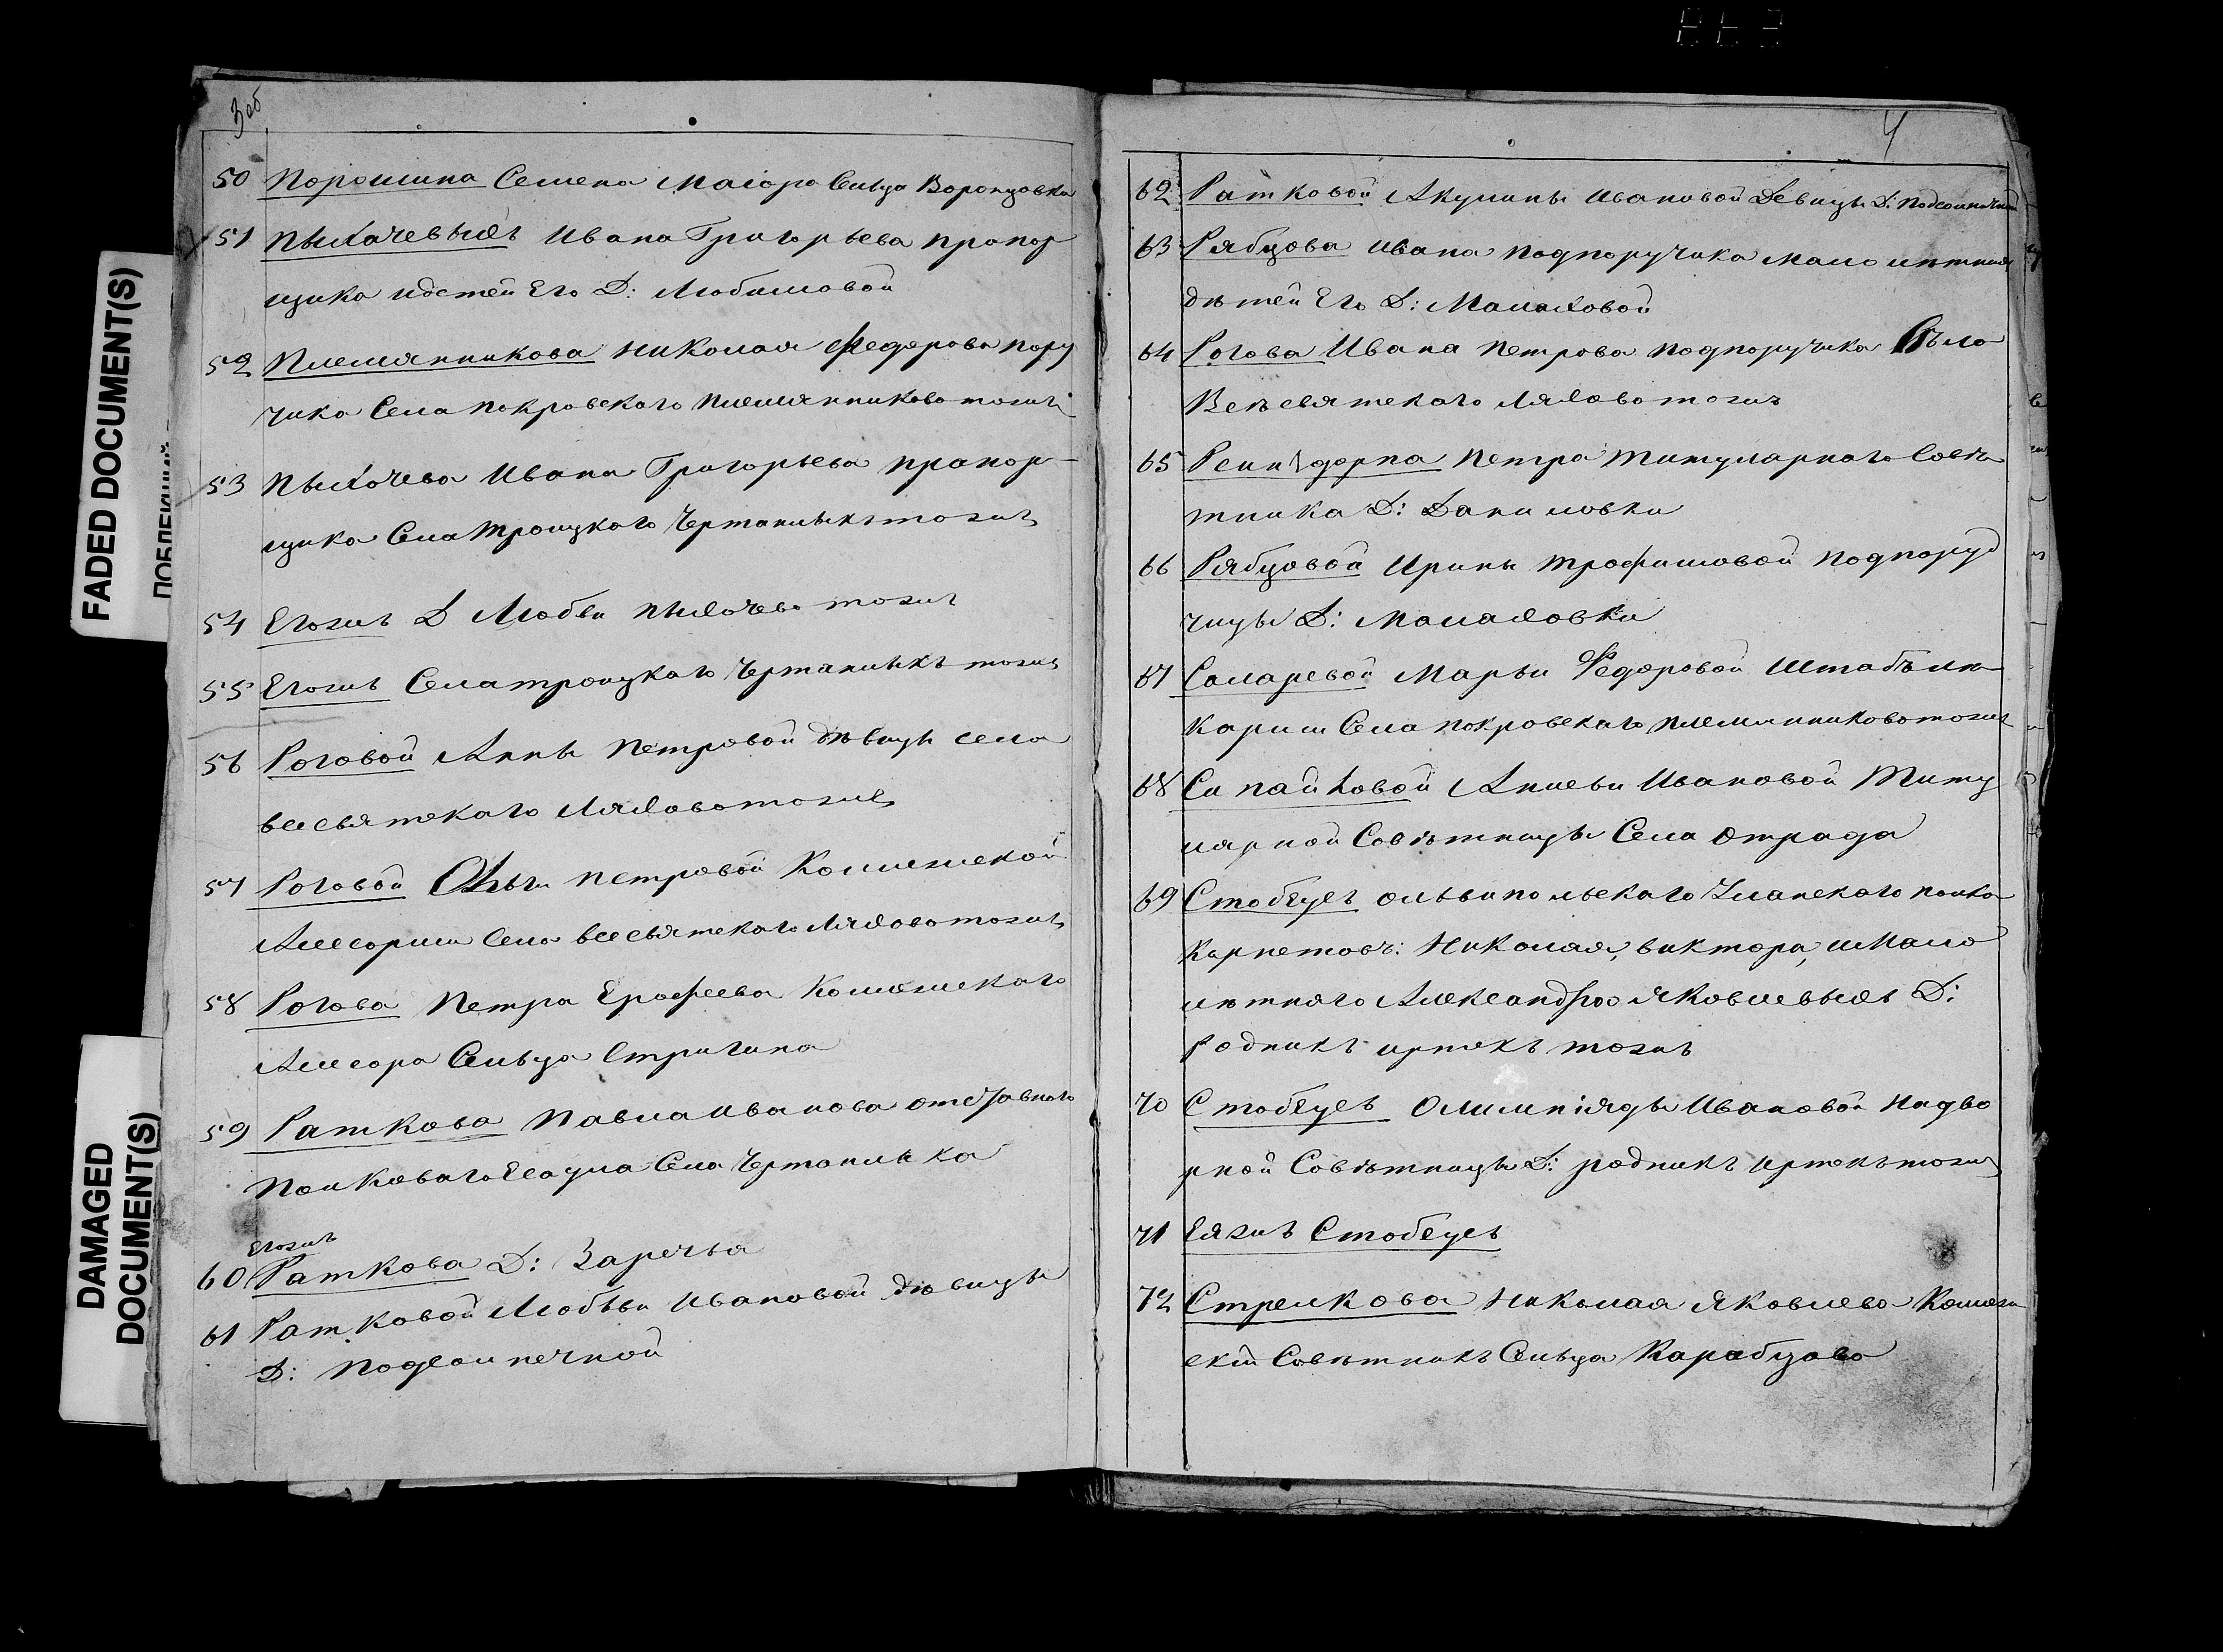 3 об
50 Порошина Семена Маіора Сельца Воронцовка
51 Пыхачевыхъ Ивана Григорьева прапор
щика идетей Его Д: Любимовой
52 Племянникова Николая Федорова пору
чика Села покровскаго племянниково тожъ
53 Пыхачева Ивана Григорьева прапор-
щика Села Троицкаго Чертанлыкъ тожъ
54 Егожъ Д Любви пыхачево тожъ
55 Егожъ Села троицкаго Чертанлыкъ тожъ
56 Роговой Анны Петровой дѣвицы села
всесвятскаго Ляховотожъ
57 Роговой Ольги петровой Колежской
Ассесорши Села всесвятскаго Ляховотожъ
58 Рогова Петра Ерофеева Колежскаго
Ассесора Сельца Стригина
59 Раткова Павла иванова отставнаго
Полковаго Есаула Села Чертанлыка
Егожъ
60 Раткова Д: Заречья
61 Ратковой Любви Ивановой дѣвицы
Д: Подсолнечной
4
62 Ратковой Акулины Ивановой Девицы Д: Подсолнечной
63 Рябцова Ивана подпоручика малолѣтних
дѣтей Его Д: Малаховой
64 Рогова Ивана петрова подпоручика Село
Всесвятскаго Ляховотожъ
65 Петра титулярнаго Совѣ
тника Д: Даниловки
66 Рябцовой Ирины трофимовой подпору
чицы Д: Малаховки
67 Марьи Федоровой Штабълѣ
карши Села покровскаго племянниковотожъ
68 Ивановой Титу
лярной Совѣтницы Села отрада
69 Стобеусъ ольвиопольскаго Уланскаго полка
Николая, виктора, имало
лѣтняго Александра Яковлевыхъ Д:
родникъ иртекъ тожъ
70 Стобеусъ Олимпіяды Ивановой Надво
рной Совѣтницы Д: родникъ иртекътожъ
71 Еяжъ Стобеусъ
72 Стрелкова Николая Яковлева Колеж
скій Совѣтникъ Сельца Карабцова
FADED DOCUMENT(S)
DAMAGED
DOCUMENT(S)